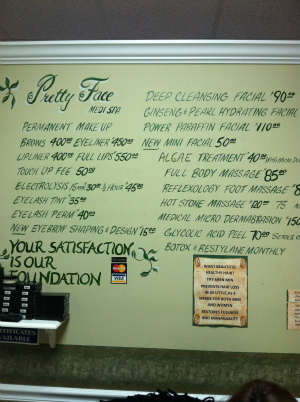 Pretty Face
MEDI SPA
PERMANENT MAKE UP
BROWS 400.00 EYELINER $450.00
LIPLINER 400.00 FULL LIPS $550.00
TOUCH UP FEE 50.00
ELECTROLYSIS 15 MIN $30.00 ½ HOUR $45.00
EYELASH TINT $35.00
EYELASH PERM $40.00
NEW EYEBROW SHAPING & DESIGN $15.00
YOUR SATISFACTION
IS OUR
FOUNDATION
VISA
CERTIFICATES
AVAILABLE
DEEP CLEANSING FACIAL $90.00
GINSENG & PEARL HYDRATING FACIAL
POWER PARAFFIN FACIAL $110.00
NEW MINI FACIAL 50.00
ALGAE TREATMENT $40.00
FULL BODY MASSAGE $85.00
REFLEXOLOGY FOOT MASSAGE
HOT STONE MASSAGE $120.00 75
MEDICAL MICRO DERMABRASION $150
GLYCOLIC ACID PEEL $70.00 SERIES
BOTOX & RESTYLANE MONTHLY
WANT BEAUTIFUL
HEALTHY HAIR?
PREVENTS HAIR LOSS
IN AS LITTLE AS 6
WEEKS FOR BOTH MEN
AND WOMEN
RESTORES FULLNESS
AND MANAGEABILITY